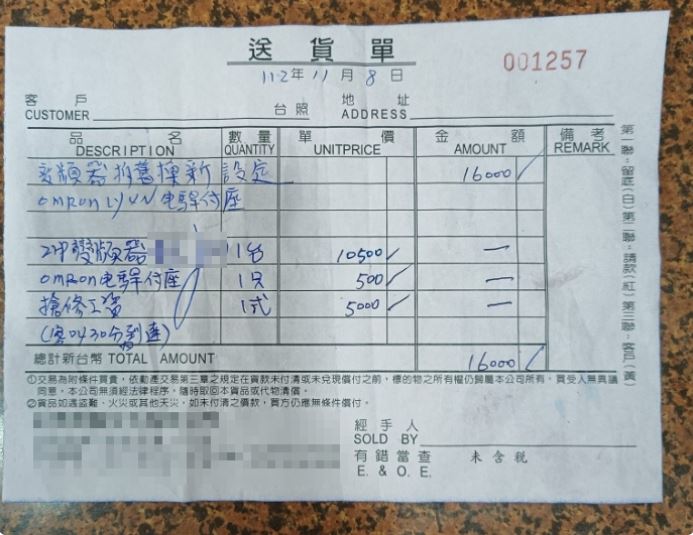 送貨單
001257
112年11月8日
客戶 台照 地址
CUSTOMER ADDRESS
品名 數量 單價 金額 備考
DESCRIPTION QUANTITY UNITPRICE AMOUNT REMARK
變頻器拆舊換新 設定 16000
omron LY4N 电驛付座
2HP變頻器 1台 10500 —
omron电驛付座 1只 500 —
搶修工資 1式 5000 —
總計新台幣 TOTAL AMOUNT 16000
①交易為附條件買賣,依動產交易第三章之規定在貨款未付清或未兌現償付之前,標的物之所有權仍歸屬本公司所有,買受人無異議
同意。本公司無須經法律程序,隨時取回本貨品或代物清償。
②貨品如遇盜難、火災或其他天災,如未付清之價款,買方仍應無條件償付。
經手人
SOLD BY
有錯當查 未含稅
E. & O. E.
第一聯:留底(白)第二聯:請款(紅)第三聯:客戶(黃)